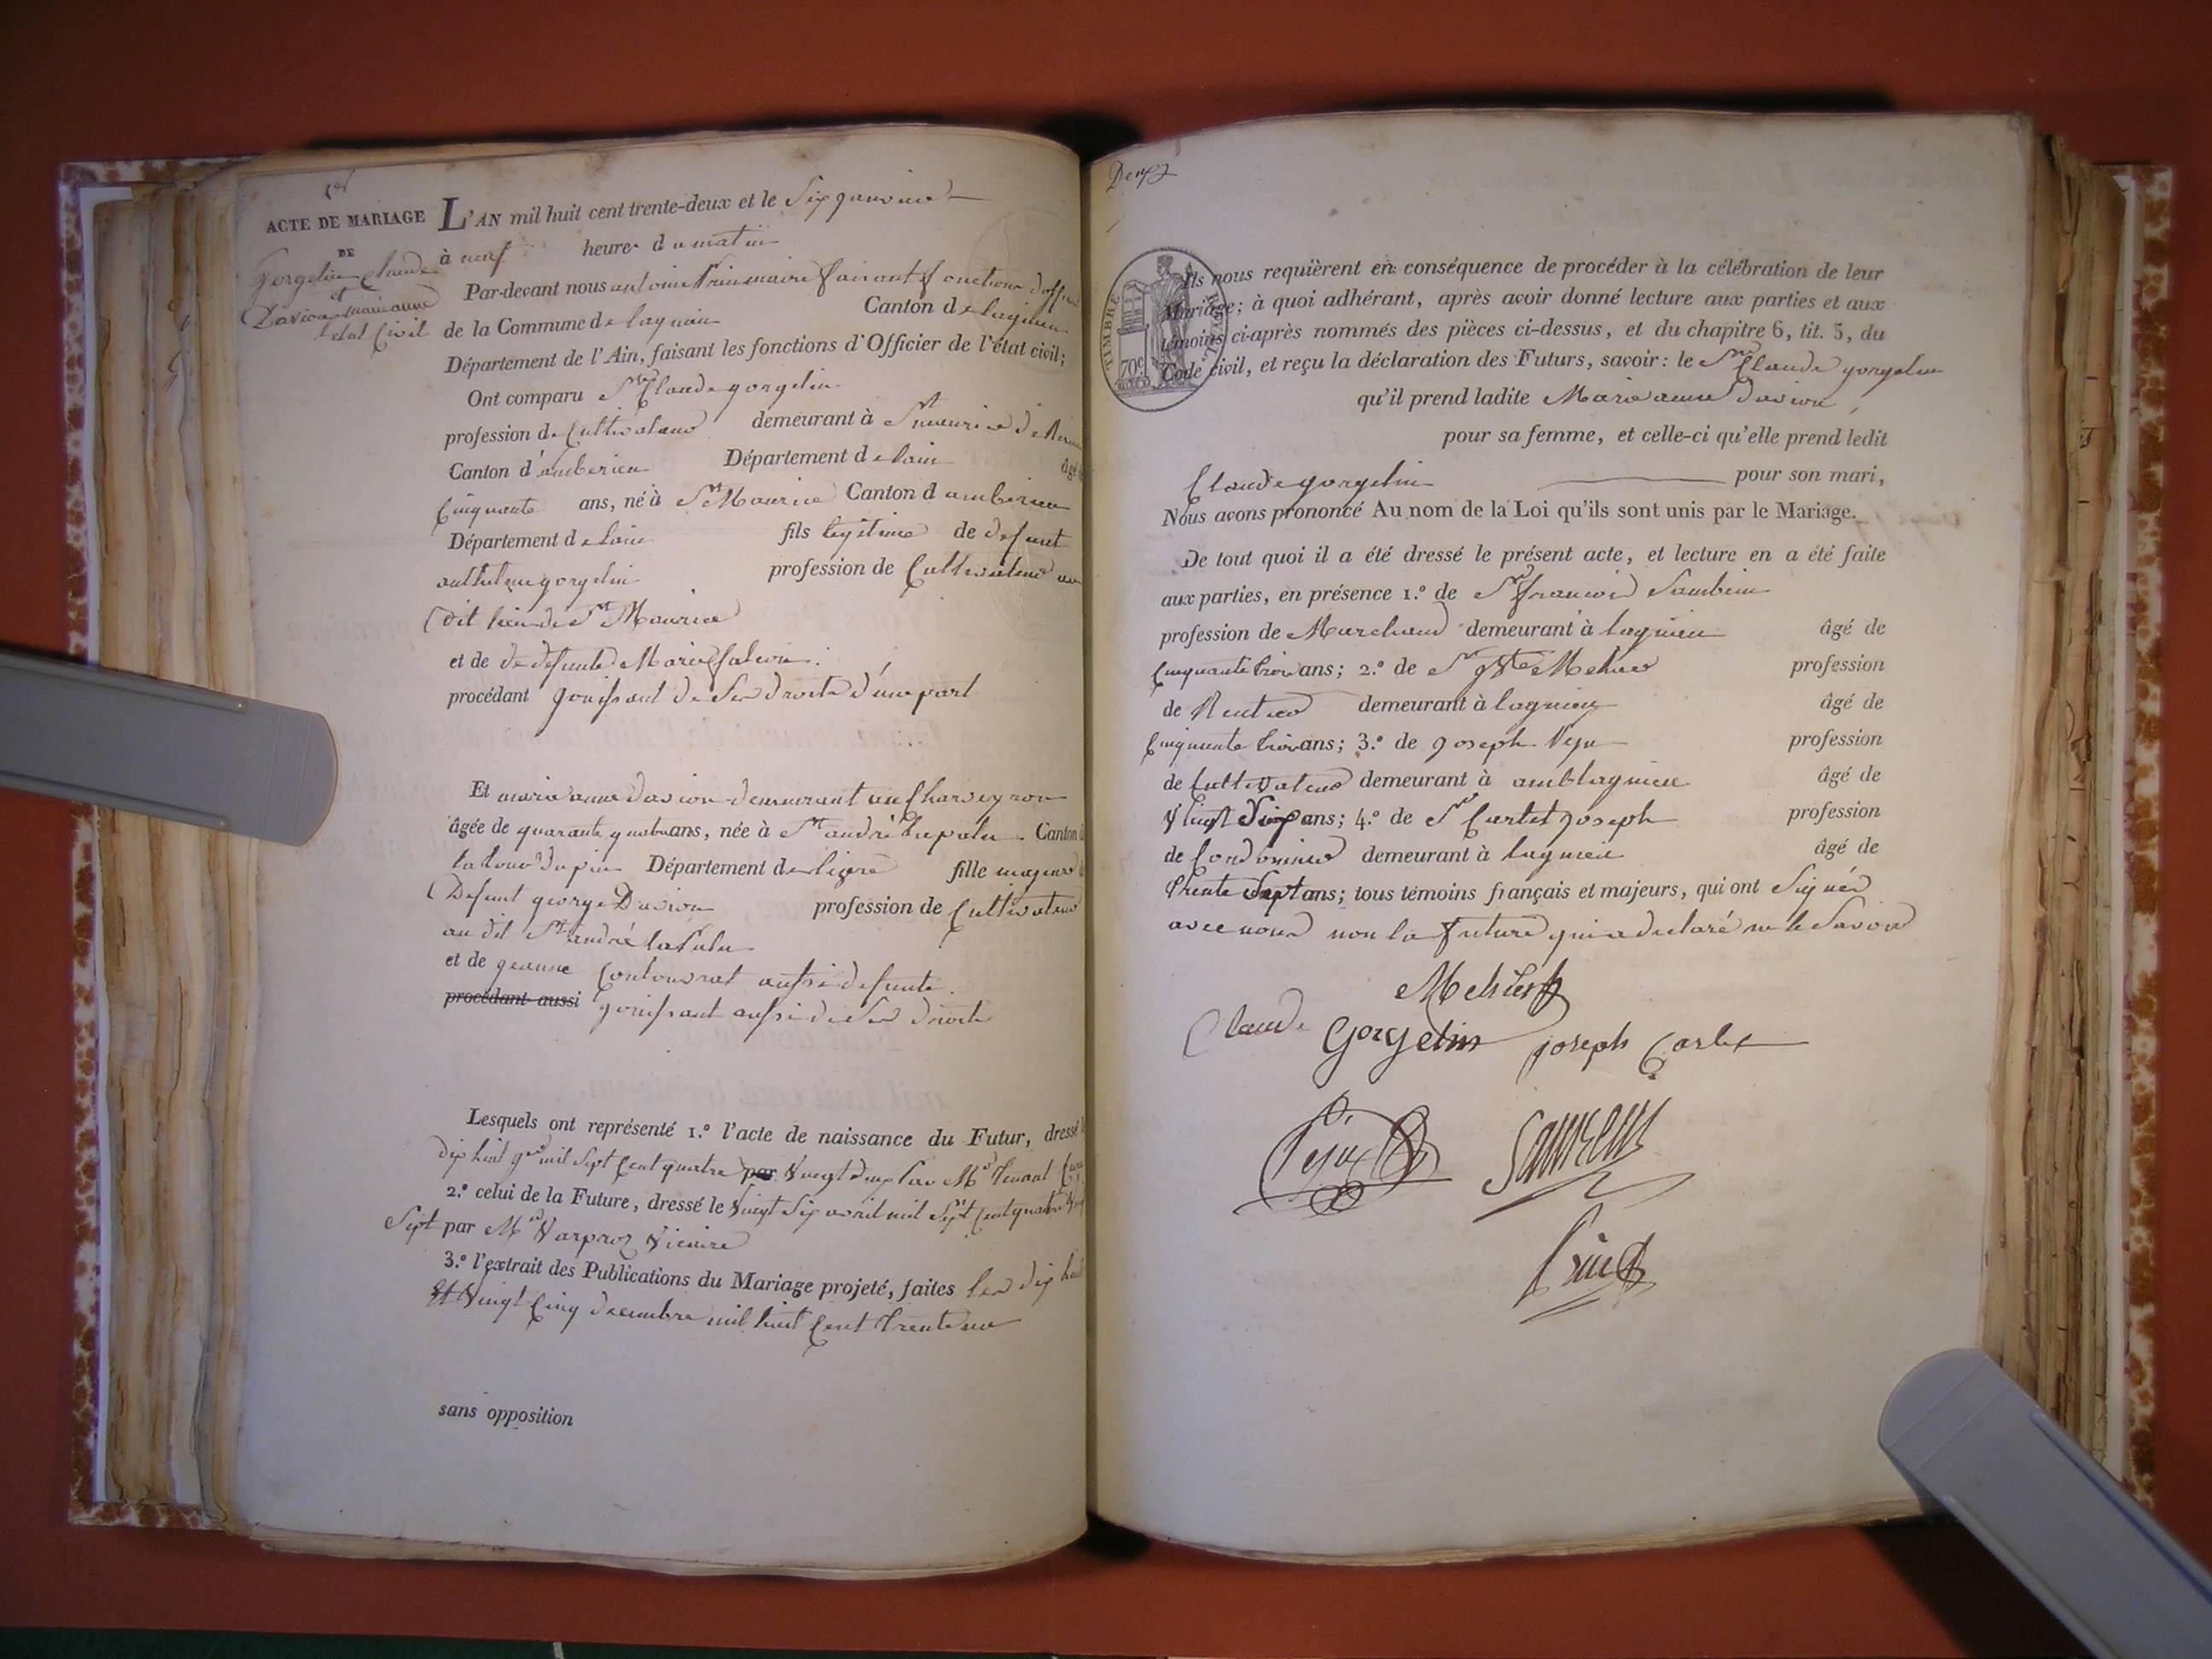 1er
ACTE DE MARIAGE
DE
Gorgelin Claude
et
Davion marie anne
L'AN mil huit cent trente-deux et le Six janvier
à neuf heures du matin
Par-devant nous antoine maire faisant fonctions d'off
de la Commune de lagnieu Canton de lagnieu
Département de l'Ain, faisant les fonctions d'Officier de l'état civil;
état Civil
Ont comparu Sr Claude gorgelin
profession de Cultivateur demeurant à St maurice de
Canton d'amberieu Département de lain âgé
Cinquante ans, né à St Maurice Canton d amberieu
Département de lain fils legitime de defunt
anthelme gorgelin profession de Cultivateur au
dit lieu de St Maurice
et de de defunte Marie falcon
procédant jouissant de Ses droits d'une part
Et marie anne davion demeurant au Charveyron
âgée de quarante quatre ans, née à St andré lapalu Canton d
latour Dupin Département de ligere fille majeure d
Defunt george Davion profession de Cultivateur
au dit St andré la Palu
et de jeanne Contouvrat aussi defunte
procédant aussi jouissant aussi de Ses droits
Lesquels ont représenté 1.º l'acte de naissance du Futur, dressé l
dix huit mil Sept Cent quatre par Vingt deux par Mr Tenant Curé
2.º celui de la Future, dressé le Vingt Six avril mil Sept Cent quatre Vingt
Sept par Mr Varproz Vicaire
3.º l'extrait des Publications du Mariage projeté, faites les dix huit
Et Vingt Cinq decembre mil huit Cent Trente un
sans opposition
Deux
TIMBRE
70c
Ils nous requièrent en conséquence de procéder à la célébration de leur
Mariage; à quoi adhérant, après avoir donné lecture aux parties et aux
témoins ci-après nommés des pièces ci-dessus, et du chapitre 6, tit. 5, du
Code civil, et reçu la déclaration des Futurs, savoir: le Sr Claude gorgelin
qu'il prend ladite Marie anne Davion,
pour sa femme, et celle-ci qu'elle prend ledit
Claude gorgelin pour son mari,
Nous avons prononcé Au nom de la Loi qu'ils sont unis par le Mariage.
De tout quoi il a été dressé le présent acte, et lecture en a été faite
aux parties, en présence 1.º de Sr francois Sambein
profession de Marchand demeurant à lagnieu âgé de
Cinquante trois ans; 2.º de Sr Mehier profession
de Rentier demeurant à lagnieu âgé de
Cinquante trois ans; 3.º de joseph Veju profession
de Cultivateur demeurant à amblagnieu âgé de
Vingt Six ans; 4.º de Sr Cartet joseph profession
de Cordonnier demeurant à lagnieu âgé de
Trente Sept ans; tous témoins français et majeurs, qui ont Signés
avec nous non la future qui a declaré ne le Savoir
Mehier
Claude Gorgelin joseph Cartet